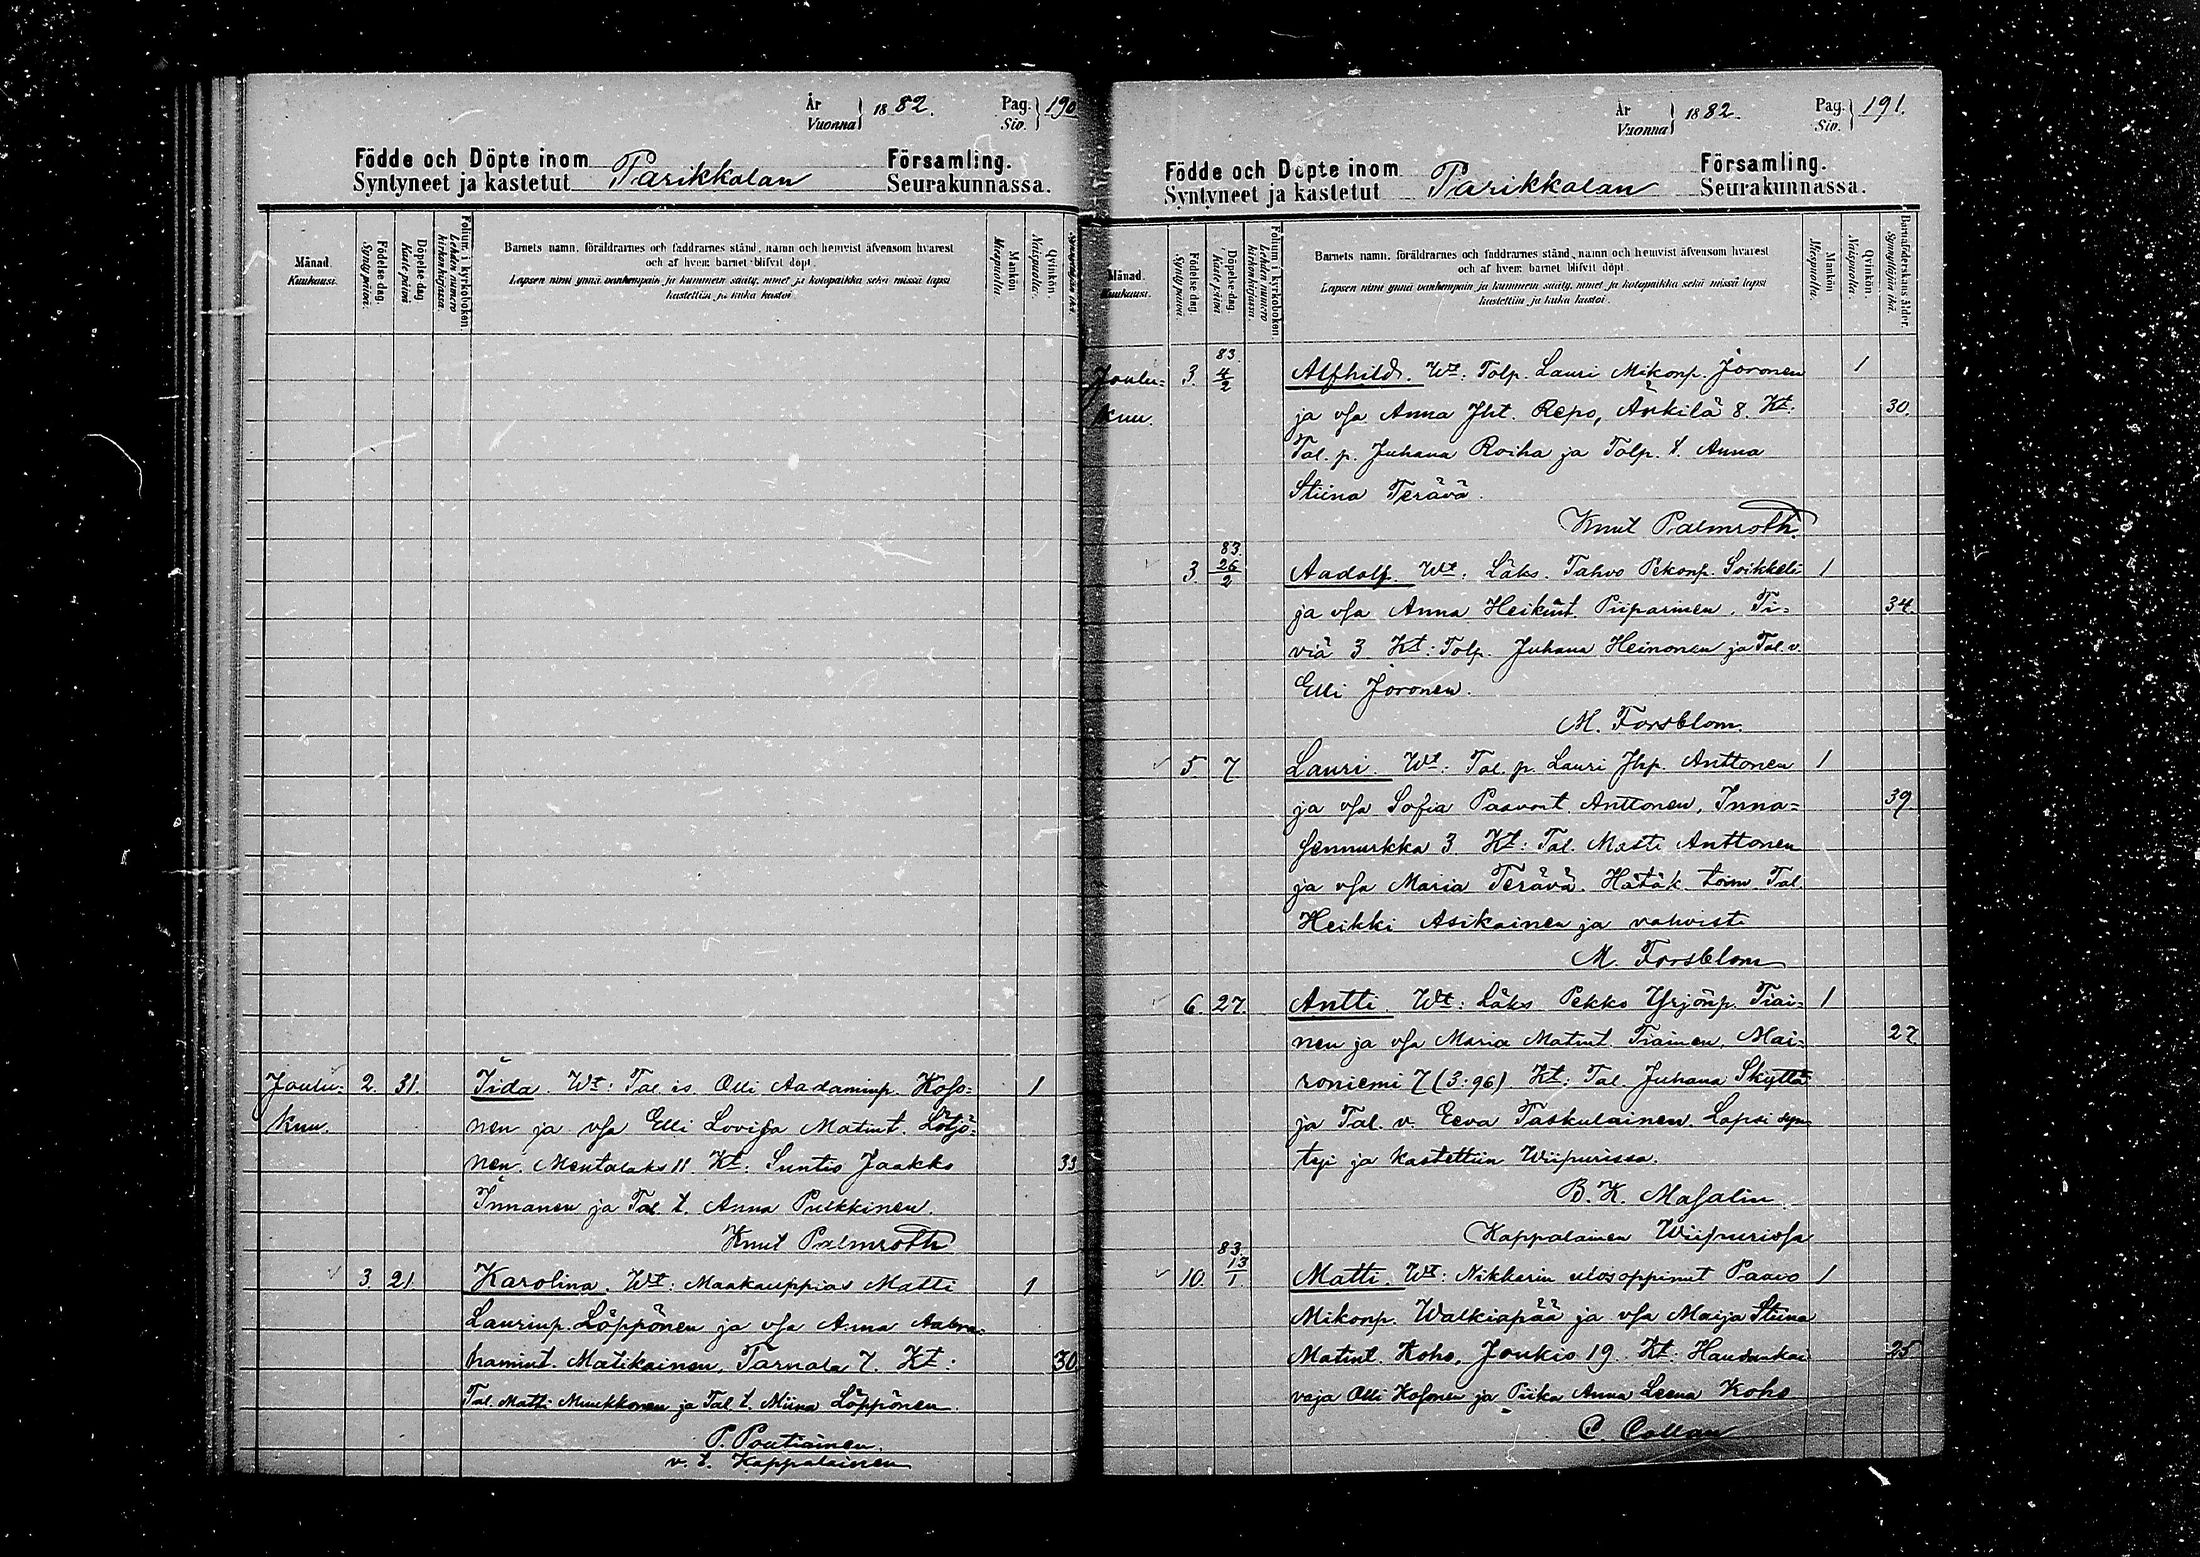 År
Vuonna } 1882.
Pag.
Siv. } 190
Födde och Döpte inom
Syntyneet ja kastetut
Parikkalan
Församling.
Seurakunnassa.
Månad.
Kuukausi.
Födelse-dag.
Synty päivä.
Döpelse-dag.
Kaste päivä
Folium i kyrkoboken.
Lehden numero kirkonkirjassa.
Barnets namn, föräldrarnes och faddrarnes stånd, namn och hemvist äfvensom hvarest
och af hvem barnet blifvit döpt.
Lapsen nimi ynnä vanhempain ja kummein sääty, nimet ja kotopaikka sekä missä lapsi
kastettiin ja kuka kastoi.
Mankön
Miespuolia.
Qvinkön.
Naispuolia.
Joulu= 2. 31. Iida. Wt: Tal. is. Olli Aadaminp. Koso= 1
kuu. nen ja vsa Elli Lovisa Matint. Lötjö=
nen. Mentalaks 11 Kt: Suntio Jaakko 33
Innanen ja Tal. t. Anna Pulkkinen.
Knut Palmroth
3. 21. Karolina. Wt: Maakauppias Matti 1
Laurinp. Löppönen ja vsa Anna Aabra=
hamint. Matikainen, Tarnala 7. Kt: 30
Tal. Matti Munkkonen ja Tal t. Miina Löppönen.
P. Poutiainen.
v. t. Kappalainen
År
Vuonna } 1882.
Pag.
Siv. } 191.
Födde och Döpte inom
Syntyneet ja kastetut
Parikkalan
Församling.
Seurakunnassa.
Månad.
Kuukausi.
Födelse-dag.
Synty päivä.
Döpelse-dag.
Kaste päivä
Folium i kyrkoboken.
Lehden numero kirkonkirjassa.
Barnets namn, föräldrarnes och faddrarnes stånd, namn och hemvist äfvensom hvarest
och af hvem barnet blifvit döpt.
Lapsen nimi ynnä vanhempain ja kummein sääty, nimet ja kotopaikka sekä missä lapsi
kastettiin ja kuka kastoi.
Mankön
Miespuolia.
Qvinkön.
Naispuolia.
Barnaföderskans ålder.
Synnyttäjän ikä.
83.
Joulu= 3. 4/2 Alfhild. Wt: Talp. Lauri Mikonp. Joronen 1
kuu. ja vsa Anna Jht. Repo, Änkilä 8. Kt. 30.
Tal. p. Juhana Roiha ja Talp. t. Anna
Stiina Terävä.
Knut Palmroth.
83.
3 26/2 Aadolf. Wt. Läks. Tahvo Pekonp. Soikkeli 1
ja vsa Anna Heikint. Piiparinen. Ti= 34.
viä 3 Kt: Talp. Juhana Heinonen ja Tal. v.
Elli Joronen.
M. Forsblom.
5 7 Lauri. Wt: Tal. p. Lauri Jhp. Anttonen 1
ja vsa Sofia Paavont. Anttonen, Inna= 39
sennurkka 3 Kt: Tal. Matti Anttonen
ja vsa Maria Terävä. Hätäk. toim. Tal
Heikki Asikainen ja vahvisti
M. Forsblom
6. 27. Antti. Wt: Läks Pekko Yrjönp. Tiai= 1
nen ja vsa Maria Matint. Tiainen, Mai= 27.
roniemi 7 (3:96) Kt: Tal. Juhana Skyttä
ja Tal. v. Eeva Taskulainen. Lapsi syn=
tyi ja kastettiin Wiipurissa.
B. K. Masalin.
Kappalainen Wiipurissa
83.
10. 13/1. Matti. Wt: Nikkarin ulosoppinut Paavo 1
Mikonp. Walkiapää ja vsa Maija Stiina
Matint. Koho, Joukio 19. Kt: Haudankai 25
vaja Olli Kosonen ja Piika Anna Leena Koho
C. Collan